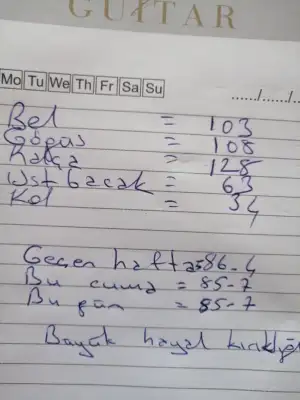 GUITAR
Mo Tu We Th Fr Sa Su
....../....../......
Bel = 103
Göğüs = 108
Kalça = 128
Üst bacak = 63
Kol = 34
Geçen hafta=86-4
Bu cuma = 85-7
Bu gün = 85-7
Büyük hayal kırıklığı